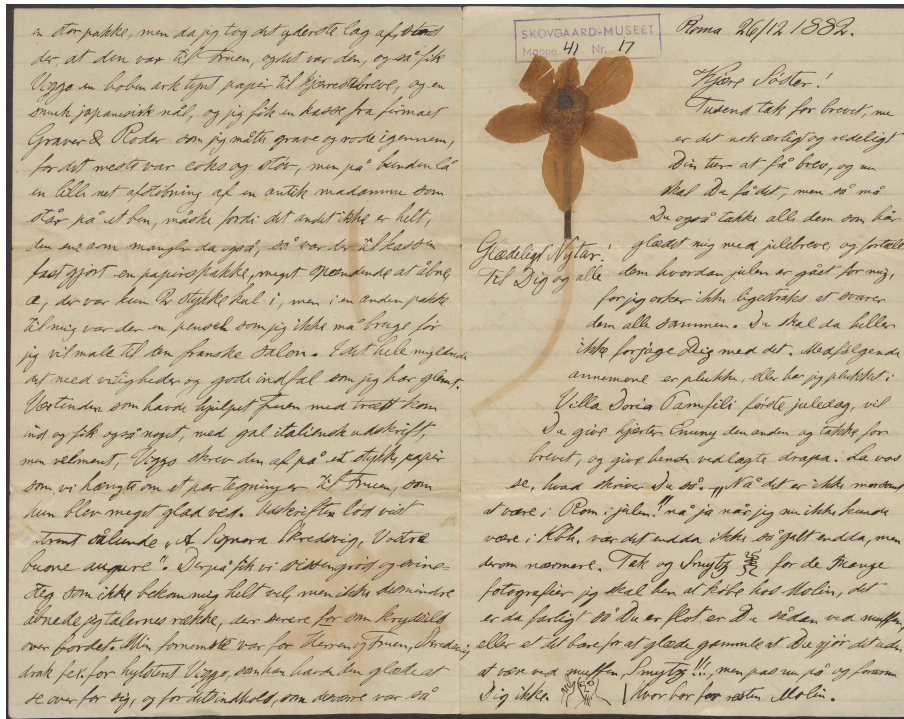 en stor pakke, men da jeg tog det yderste lag af, stod
der at den var til Fruen, og det var den, og så fik
Viggo en hoben ark tynt papir til kjærestebreve, og en
smuk japanesisk nål, og jeg fik en kasse fra firmaet
Graver & Roder som jeg måtte grave og rode igennem,
for det meste var coks og støv, men på bunden lå
en lille net afstøbning af en antik madamme som
står på et ben, måske fordi det andet ikke er helt,
den ene arm mangler da også, så var der til kassen
fast gjort en papirspakke, meget spændende at åbne,
der var kun stykke kul i, men i en anden pakke
til mig var der en pensel som jeg ikke må bruge før
jeg vil male til den franske salon. I det hele myldrede
det med vittigheder og gode indfald som jeg har glemt.
Værtinden som havde hjulpet Fruen med træet kom
ind og fik også noget, med gal italiensk udskrift,
men velment, Viggo skrev den af på et stykke papir
som vi hængte om et par tegninger til Fruen, som
hun blev meget glad ved. Udskriften lød vist
omtrent således "A Signora Skredsvig,
buone augure". Derpå fik vi rissengrød og
steg som ikke bekom mig helt vel, men ikke desmindre
åbnede jeg talernes række, der svirrede som krydsild
over bordet. Min fornemste var for Herren og Fruen, Skredsvig
drak for Viggo, som han havde den glæde at
se over for sig, og for dets indhold, som desværre var så
SKOVGAARD-MUSEET
Mappe 41 Nr. 17
Roma 26/12 1882.
Kjære Søster!
Tusend tak for brevet, nu
er det nok ærligt og redeligt
Din tur at få brev, og nu
skal Du få det, men så må
Du også takke alle dem som har
glædet mig med julebreve, og fortælle
dem hvordan julen er gået for mig,
for jeg orker ikke ligestraks at svare
dem alle sammen. Du skal da heller
ikke forjage Dig med det. Medfølgende
annemone er plukket, eller har jeg plukket i
Villa Doria Pamfili første juledag, vil
Du give hjerter Emmy den anden og takke for
brevet, og give hende vedlagte drapa. Lad os
se, hvad skriver Du så. "Nå det er ikke
at være i Rom i julen!" nå ja når jeg nu ikke kunde
være i Kbh. var det endda ikke så galt endda, men
derom nærmere. Tak og Smytz for de mange
fotografier jeg skal hen at købe hos Molin, det
er da farligt så Du er flot, er Du sådan ved muffen,
eller er det bare for at glæde gammele at Du gjør det uden
at være ved muffen, Smytz!!!, men pas nu på og foraarm
Dig ikke Hvor bor for resten Molin.
Glædeligt Nytår!
til Dig og alle